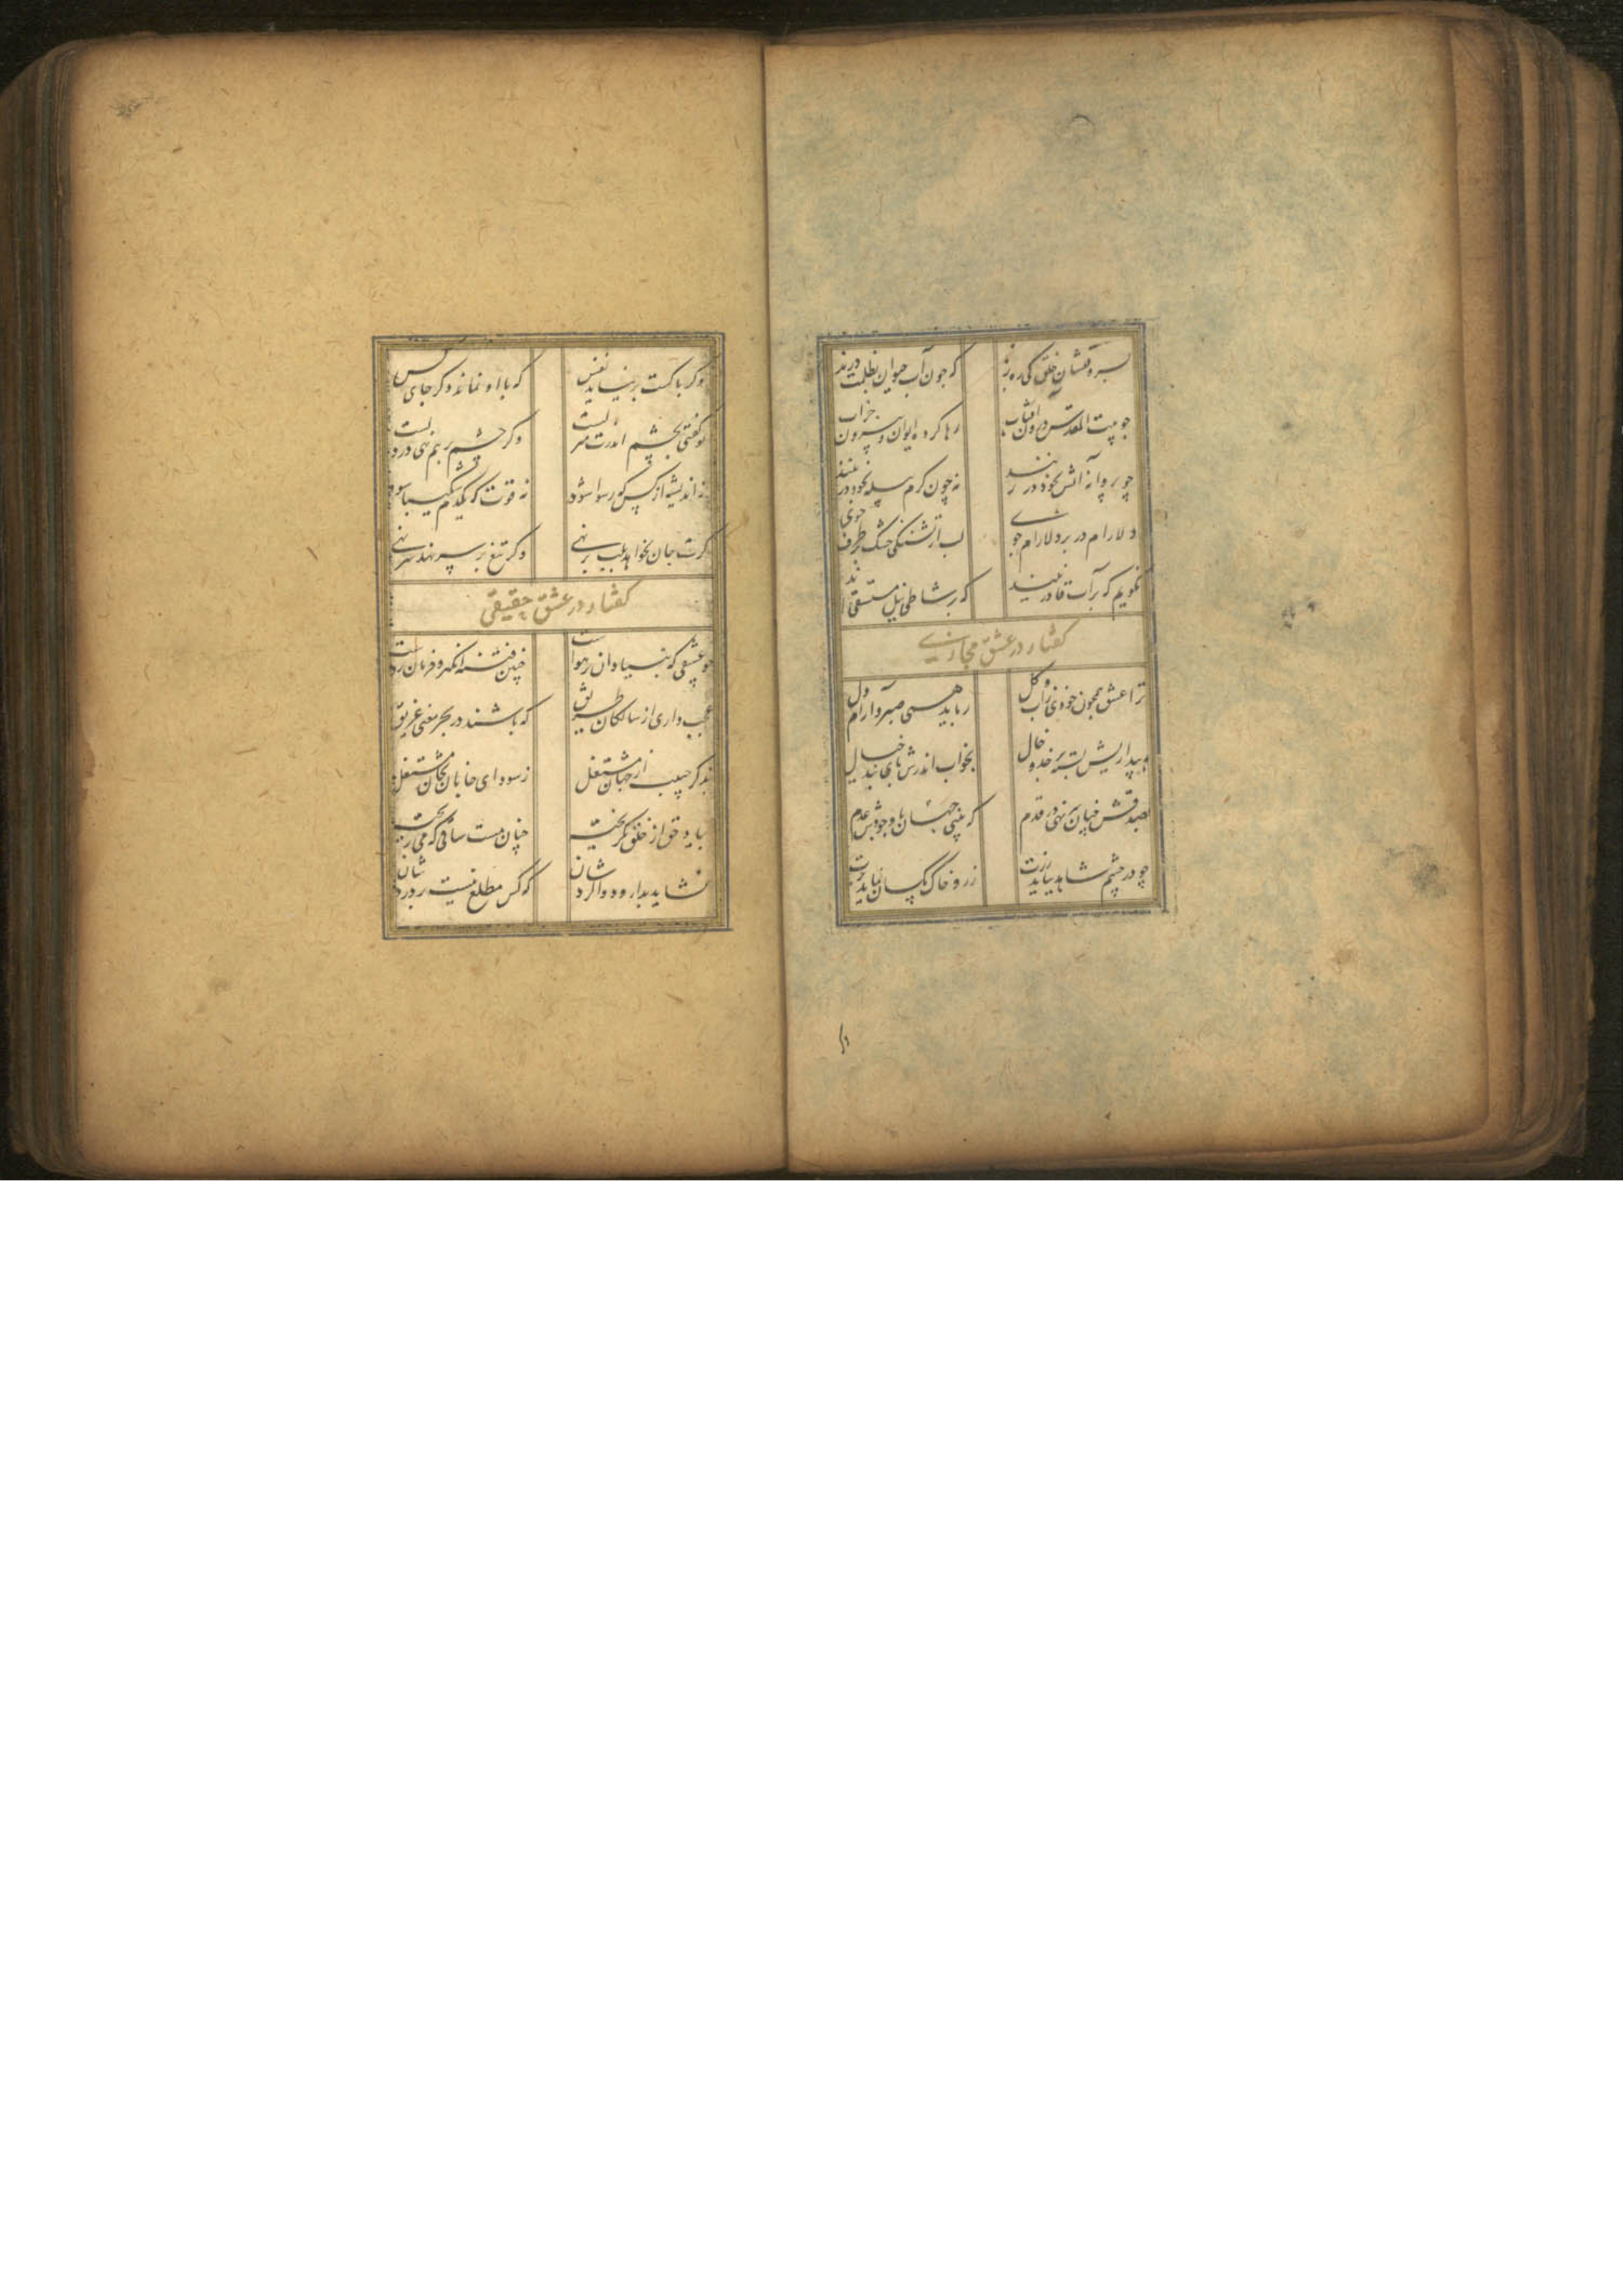 بسر وقتشان خلق کی ره برند
که جون آب حیوان بظلمت درند
جو بیت المقدس درون آفتاب
رها کرده ایوان بیرون خراب
چو پروانه آتش بخود در زنند
نه چون کرم پیله بخود در تنند
دلارام در بر دلارام جوی
لب از تشنکی خشک بر طرف جوی
نکویم که بر آب قادر نیند
که بر شاطی نیل مستسقی اند
کفتار در عشق مجازی
ترا عشق همچون خودی زآب و کل
رباید همی صبر و آرام دل
ببیداریش بسته بر خد و خال
بخواب اندرش پای بند خیال
بصدقش چنان سر نهی در قدم
که بینی جهان با وجودش عدم
چو در چشم شاهد نیاید زرت
زر و خاک یکسان نماید برت
وکر باکست بر نیاید نفس
که با او نماند وکر جای کس
تو کفتی بچشم اندرت منزلست
وکر چشم بر هم نهی در دلست
نه اندیشه از کس که رسوا شوی
نه قوت که یکدم شکیبا شوی
کرت جان بخواهد بلب بر نهی
وکر تیغ بر سر نهد سر نهی
کفتار در عشق حقیقی
جو عشقی که بنیاد آن بر هواست
چنین فتنه انکیز و فرمان رواست
عجب داری از سالکان طریق
که باشند در بحر معنی غریق
بذکر حبیب از جهان مشتغل
ز سودای جانان بجان مشتغل
بیاد حق از خلق بکریخته
چنان مست ساقی که می ریخته
نشاید بدارو دوا کردشان
که کس مطلع نیست بر دردشان